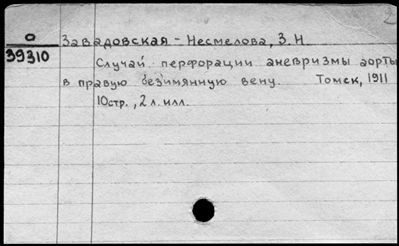 О
39310
Завадовская - Несмелова, З. Н.
Случай перфорации аневризмы аорты
в правую безимянную вену Томск, 1911
10стр., 2 л. илл.